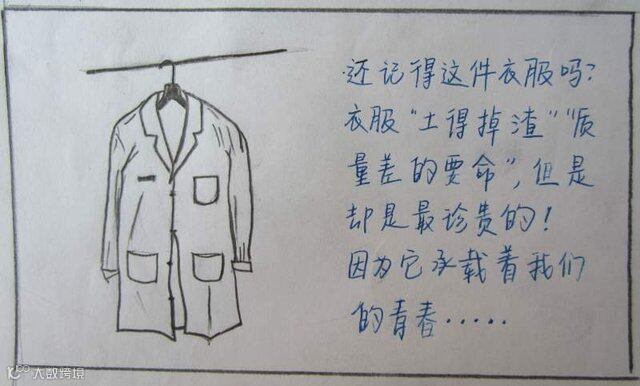 还记得这件衣服吗?
衣服"土得掉渣""质
量差的要命",但是
却是最珍贵的!
因为它承载着我们
的青春.....
大数跨境